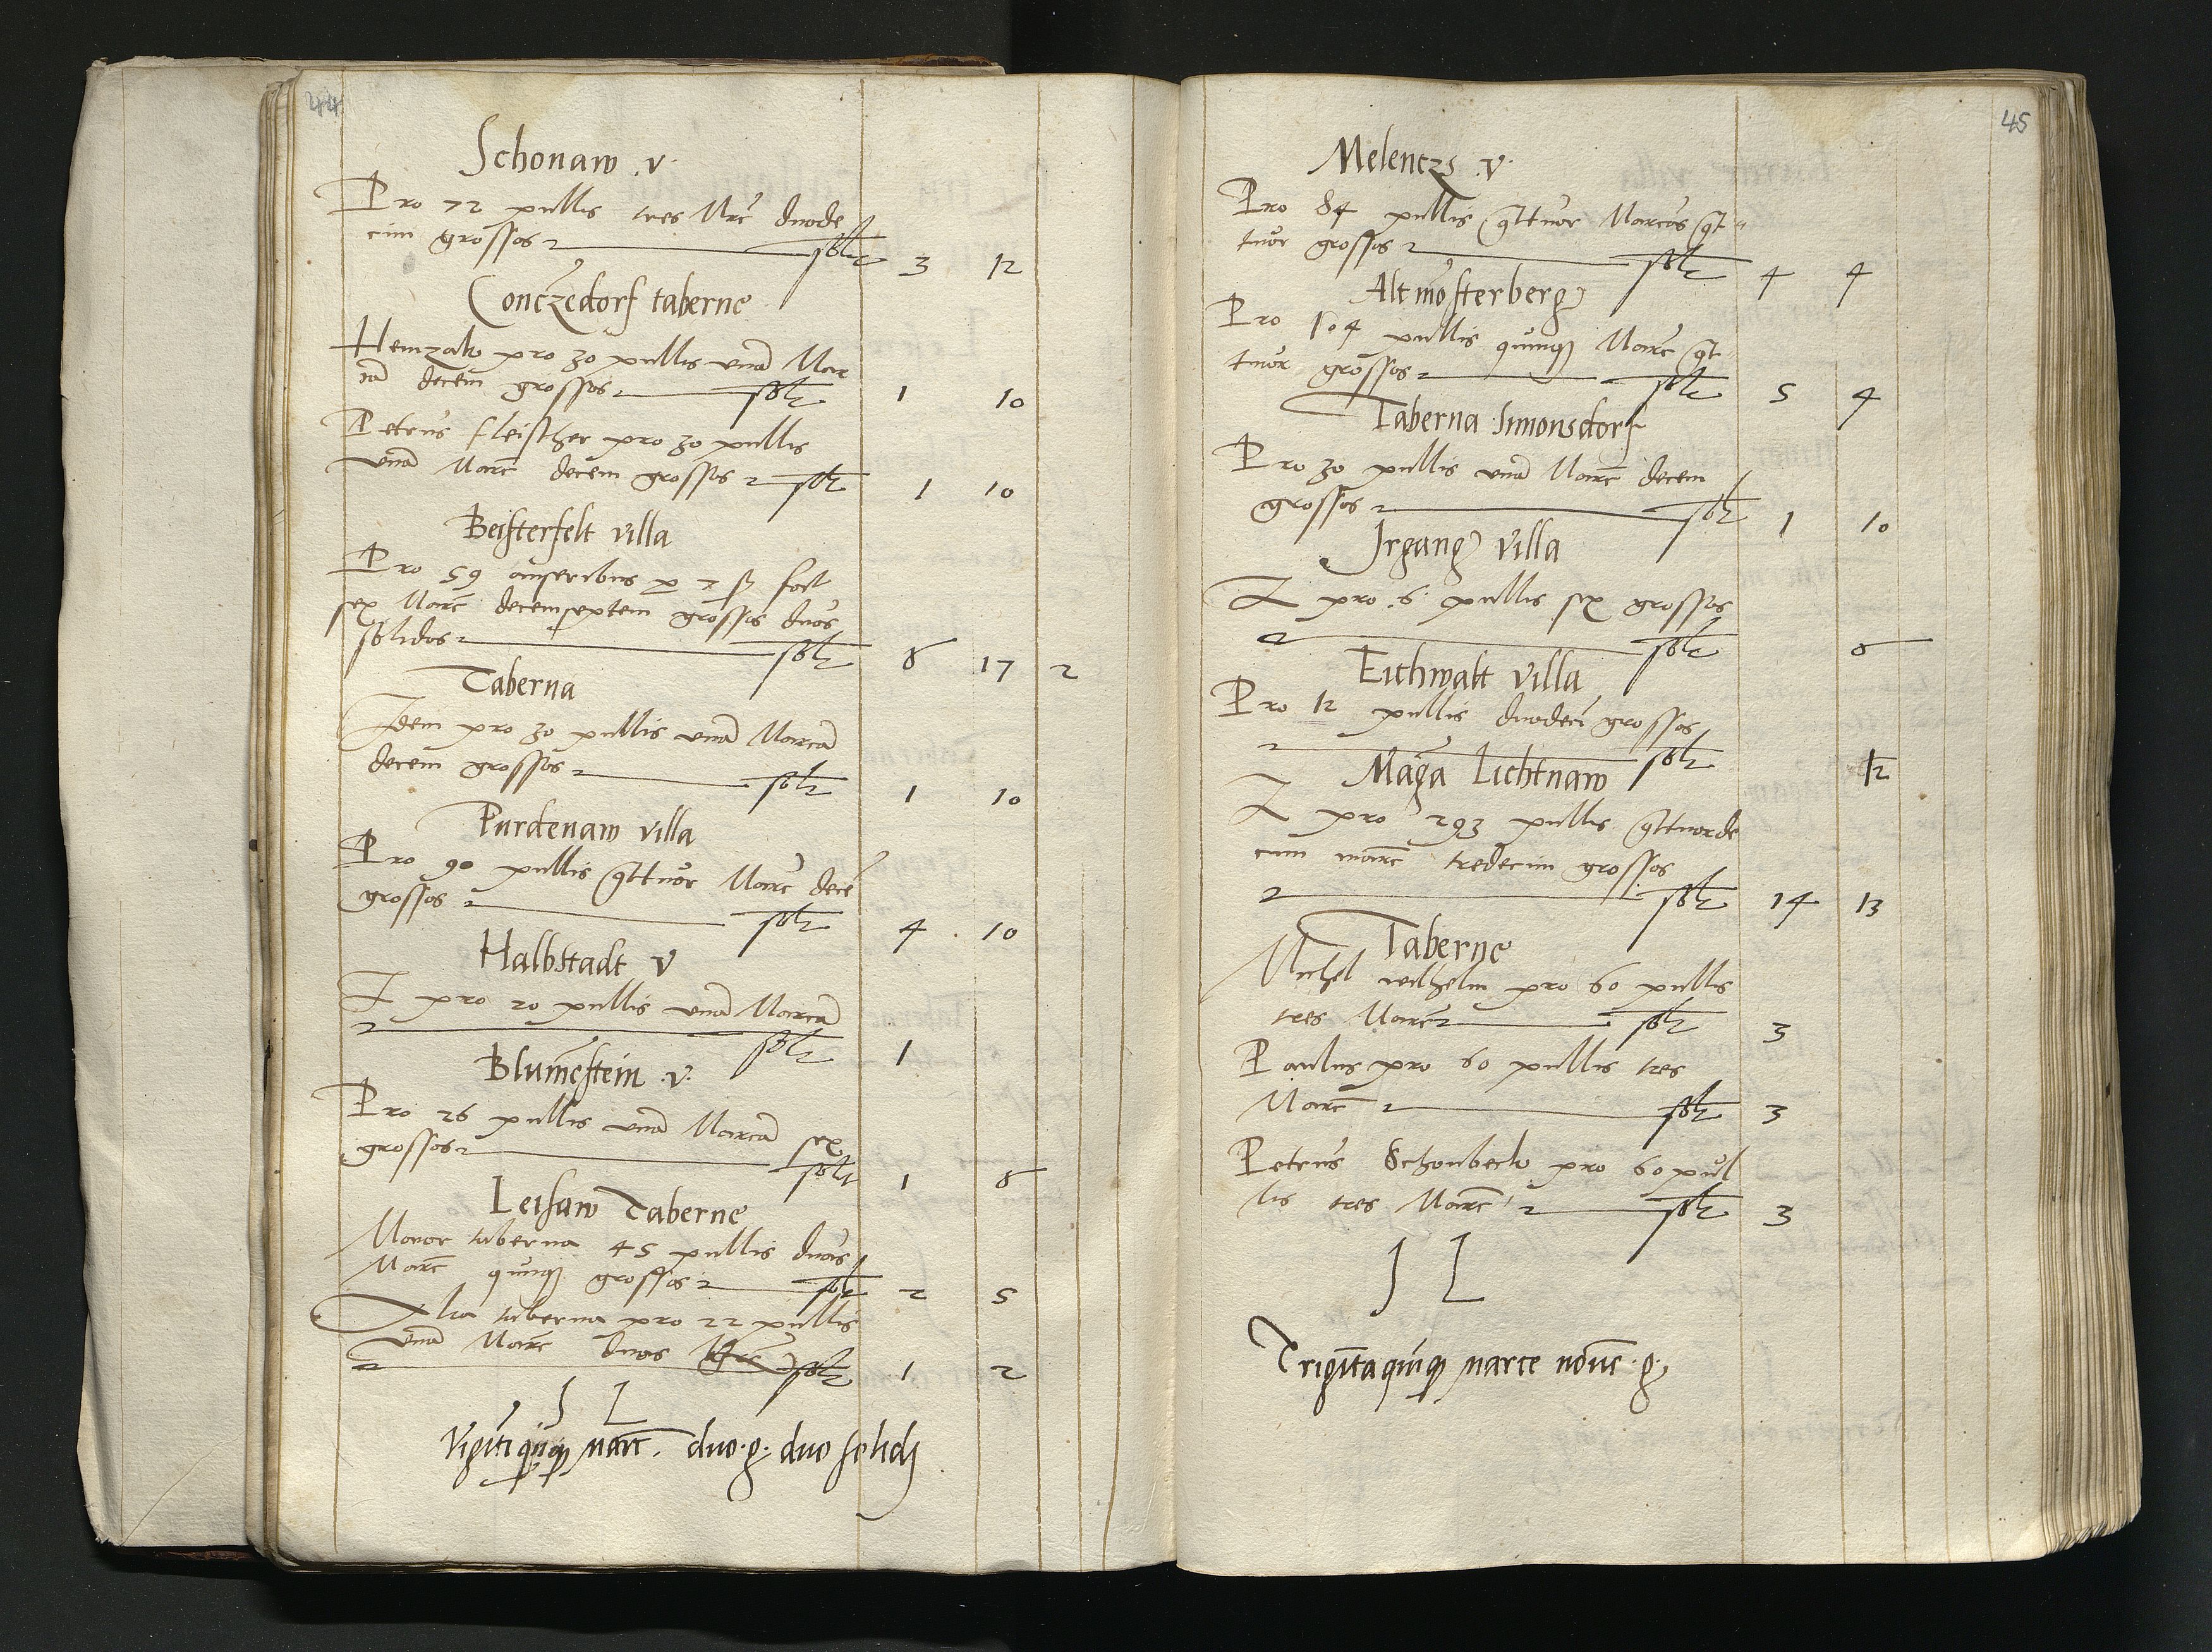 44
Schonaw .v.
Pro 72 pullis tres Mrc̄ duode
cim grossos solt 3 12
Conczēdorf taberne
Heinzak pro 30 pullis unā Mar
cā decem grossos solt 1 10
Petrus fleischer pro 30 pullis
unā Marc̄ decem grossos solt 1 10
Beisterfelt villa
Pro 59 anseribus p 7 ß facit
sex Marc̄ decemseptem grossos duos
solidos solt 6 17 2
Taberna
Idem pro 30 pullis unā Marcā
decem grossos solt 1 10
Purdenaw villa
Pro 90 pullis q̄ttuor Marc̄ decē
grossos solt 4 10
Halbstadt v
I pro 20 pullis unā Marcā
solt 1
Blumēstein .v.
Pro 26 pullis unā Marcā sex
grossos solt 1 6
Leisaw Taberne
Maior taberna 45 pullis duas
Marc̄ quinq₃ grossos solt 2 5
Alia taberna pro 22 pullis
unā Marc̄ duos solt 1 2
S L
Vigīti quīq₃ marc̄. duo .g. duo solidj
45
Melenczs .v.
Pro 84 pullis q̄ttuor Marcas q̄t
tuor grossos solt 4 4
Altmōsterberg
Pro 104 pullis quinq₃ Marc̄ q̄t
tuor grossos solt 5 4
Taberna Simonsdorf
Pro 30 pullis unā Marc̄ decem
grossos solt 1 10
Jrgang villa
I pro .6. pullis sex grossos
solt 6
Eichwalt villa
Pro 12 pullis duodecī grossos
solt 12
Māga Lichtnaw
I pro 293 pullis q̄ttuorde
cim marc̄ tredecim grossos
solt 14 13
Taberne
Michel wilhelm pro 60 pullis
tres Marc̄ solt 3
Paulus pro 60 pullis tres
Marc̄ solt 3
Petrus Schonbeck pro 60 pul
lis tres Marc̄ solt 3
S L
Trigīta quīq₃ marce novē .g.